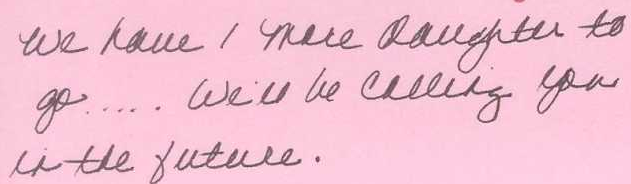 We have 1 more daughter to
go..... We'll be calling you
in the future.